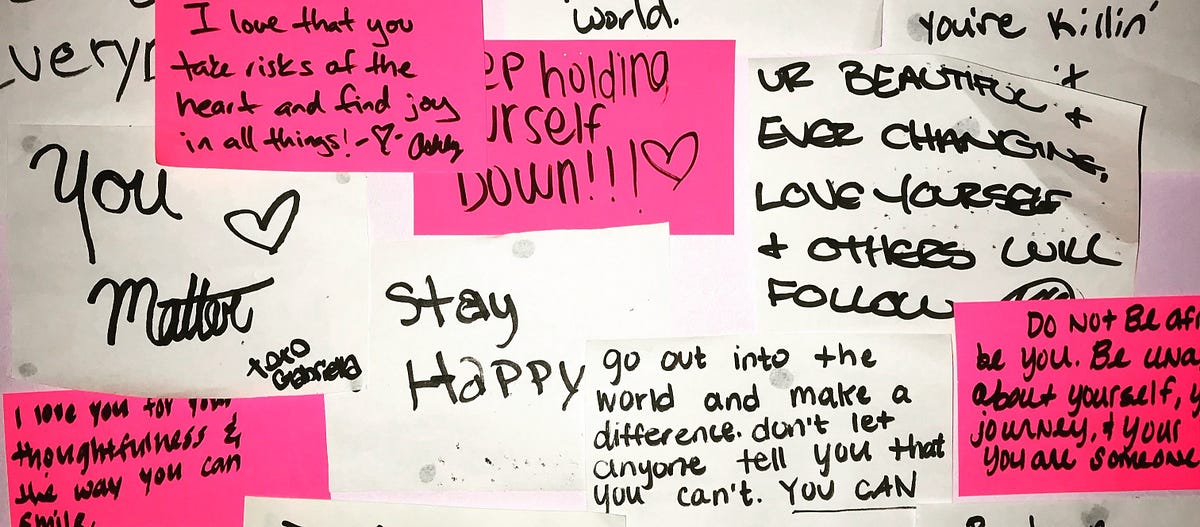 I love that you
take risks of the
heart and find joy
in all things! -♡- Ashley
world.
you're Killin'
it
ep holding
urself
Down!!! ♡
UR BEAUTIFUL +
EVER CHANGING,
LOVE YOURSELF
+ OTHERS WILL
FOLLOW
You ♡
Matter
xoxo
Gabriella
Stay
Happy
go out into the
world and make a
difference. don't let
anyone tell you that
you can't. YOU CAN
DO NOT BE af
be you. Be una
about yourself, y
journey, & your
you are someone
I love you for your
thoughtfulness &
the way you can
smile.